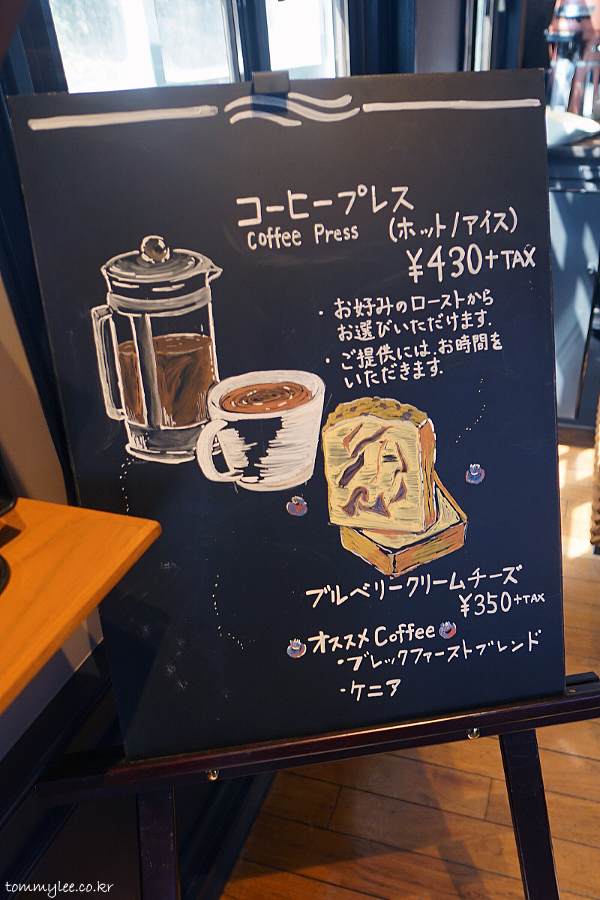 コーヒープレス
Coffee Press (ホット/アイス)
¥430+TAX
・お好みのローストから
お選びいただけます.
・ご提供には、お時間を
いただきます.
ブルベリークリームチーズ
¥350+TAX
オススメCoffee
・ブレックファーストブレンド
・ケニア
tommylee.co.kr